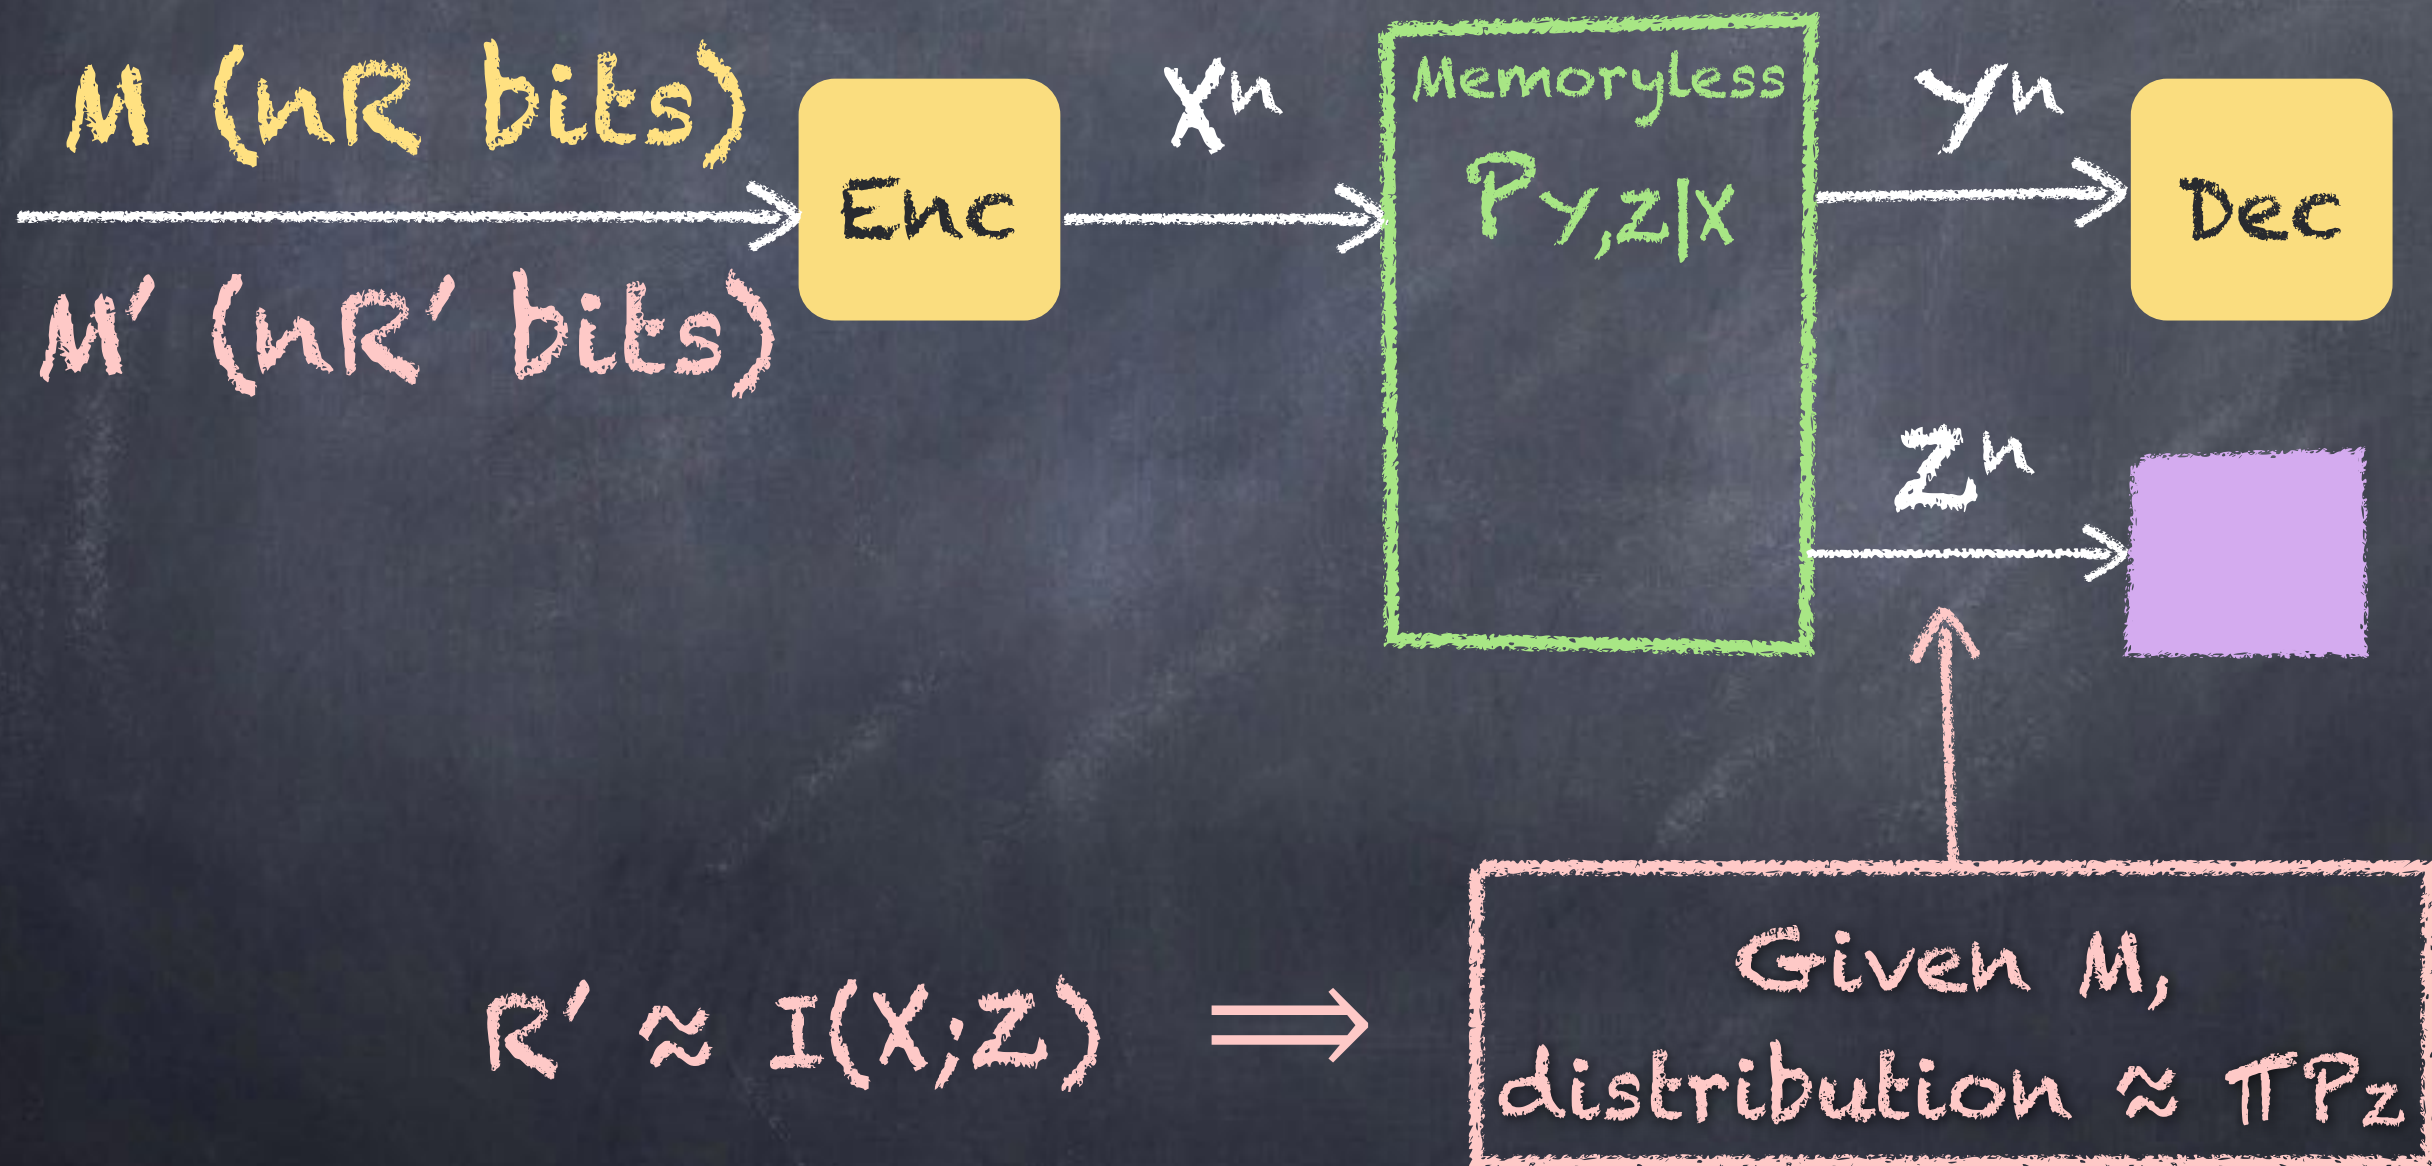 M (nR bits)
M′ (nR′ bits)
Enc
Xⁿ
Memoryless
P_{Y,Z|X}
Yⁿ
Dec
Zⁿ
R′ ≈ I(X;Z) ⟹
Given M,
distribution ≈ ΠP_Z